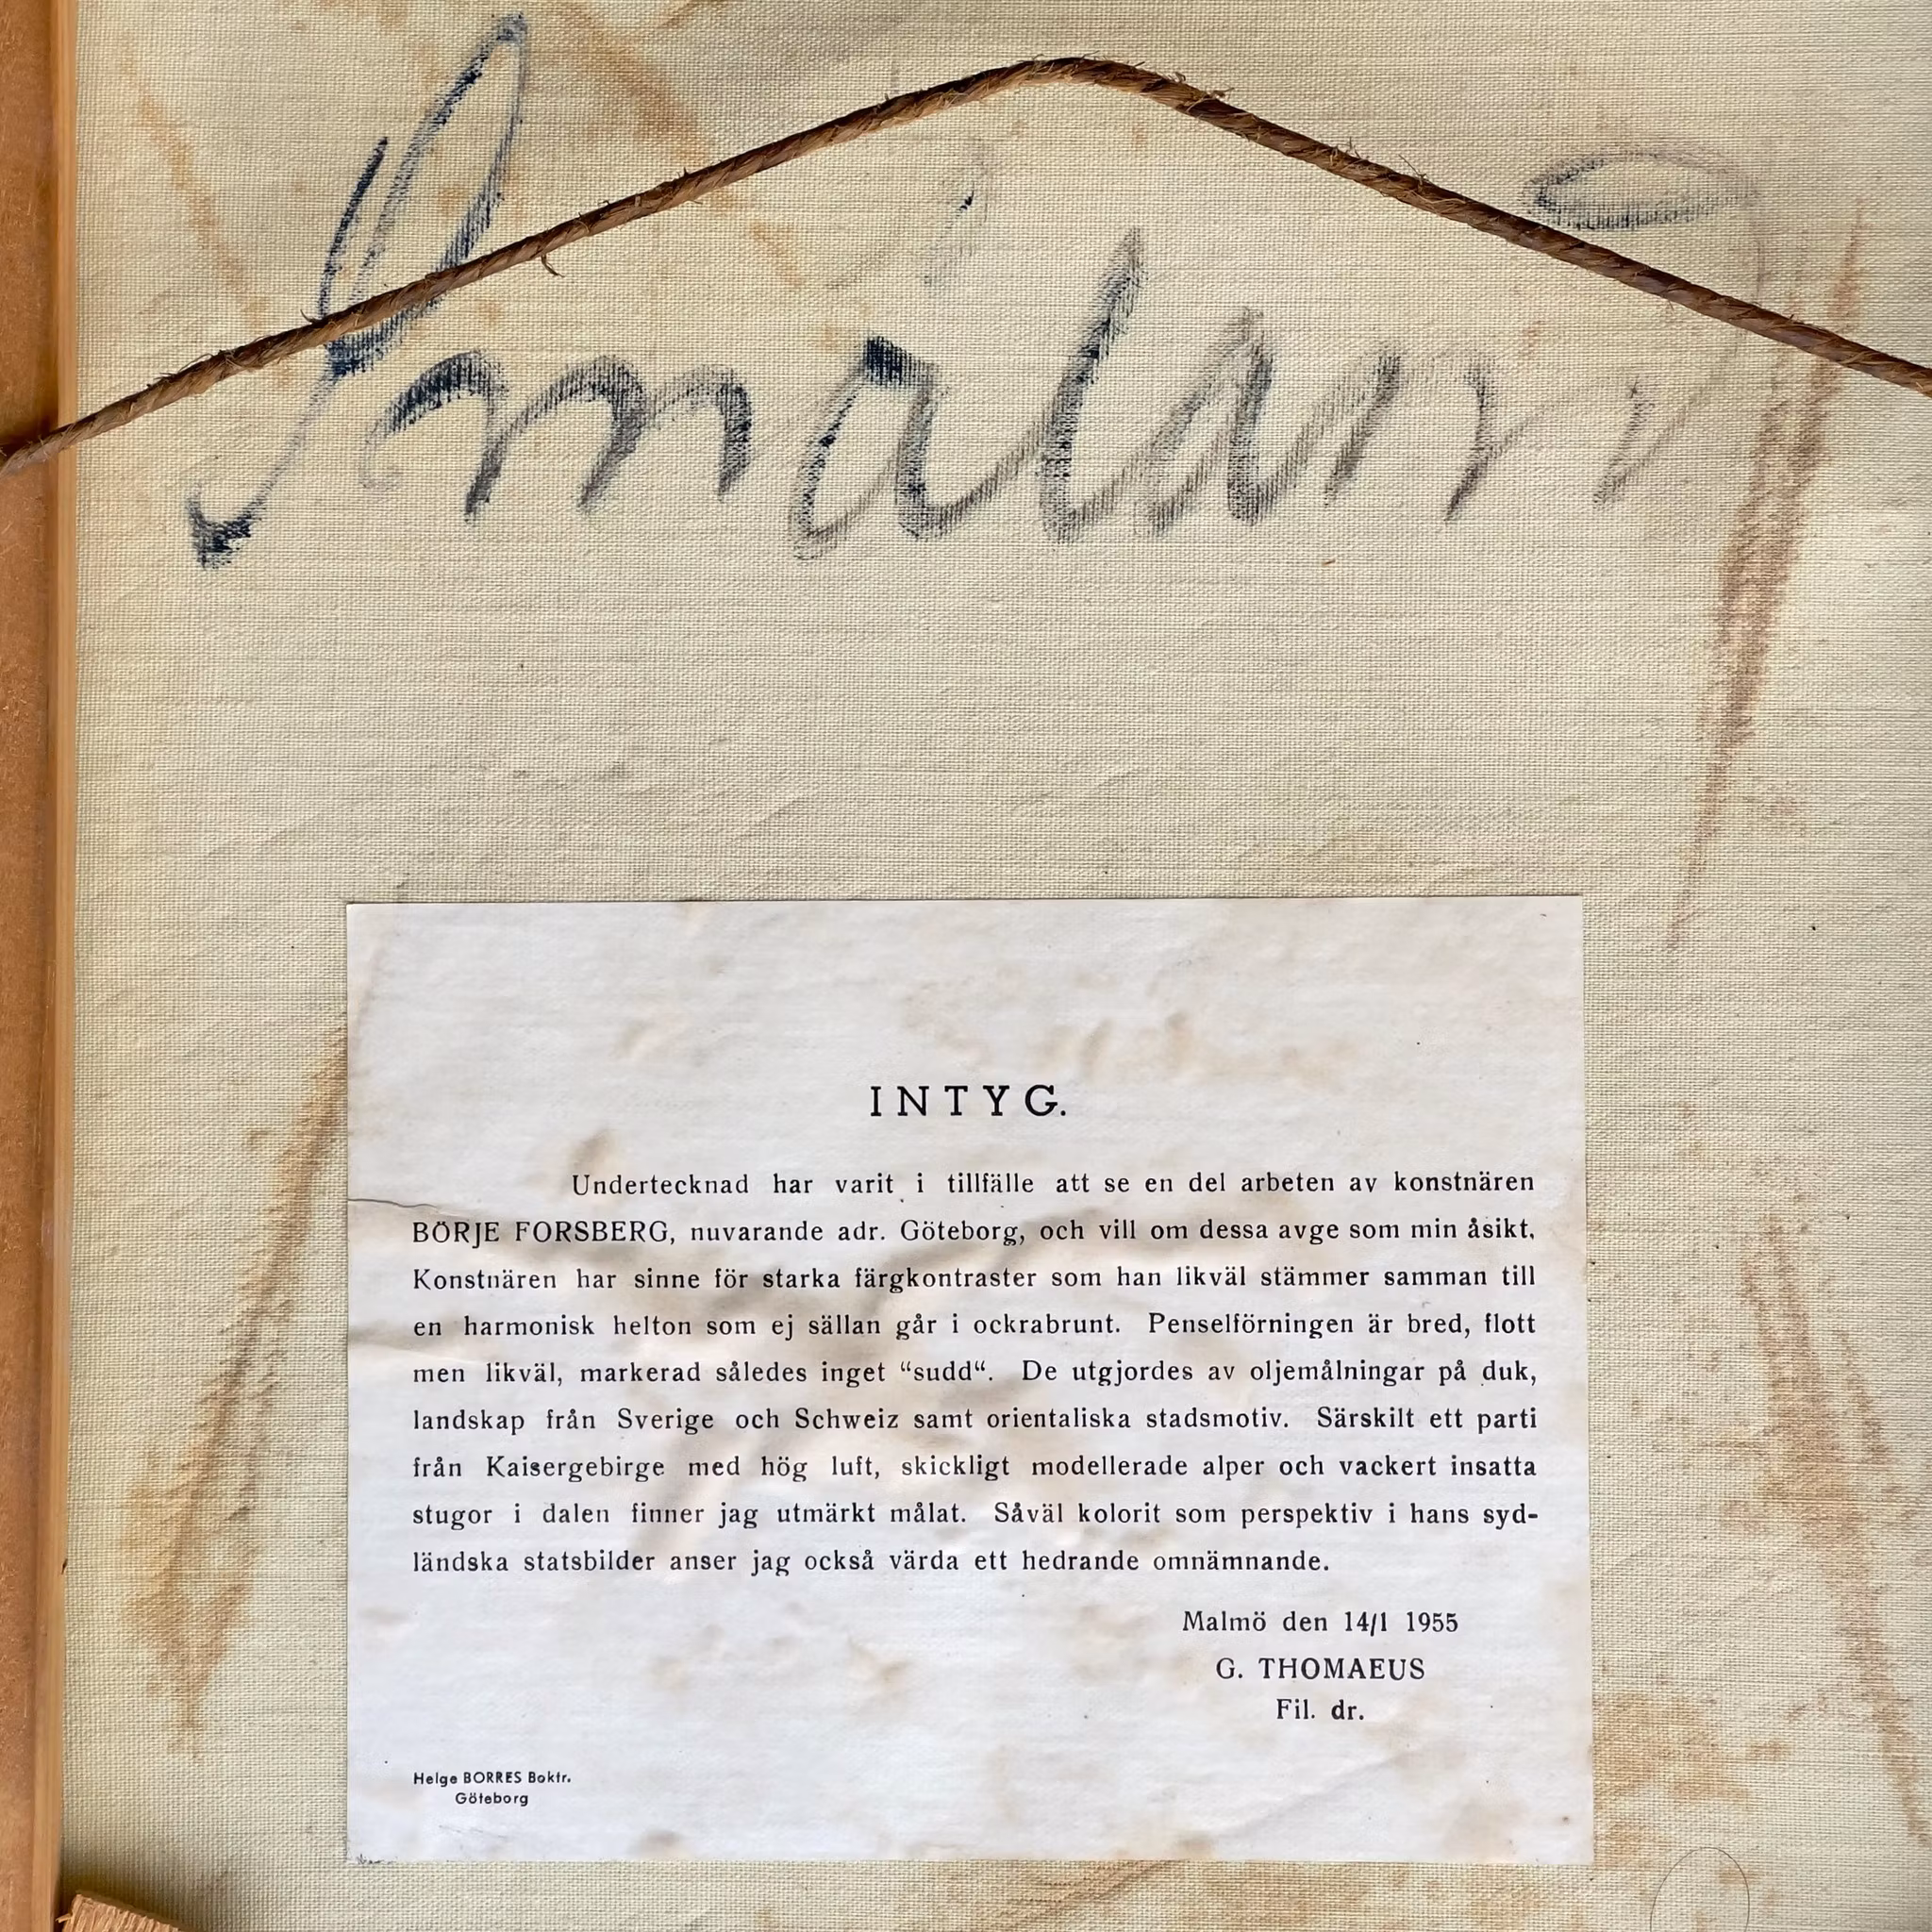 Småland
INTYG.
Undertecknad har varit i tillfälle att se en del arbeten av konstnären
BÖRJE FORSBERG, nuvarande adr. Göteborg, och vill om dessa avge som min åsikt.
Konstnären har sinne för starka färgkontraster som han likväl stämmer samman till
en harmonisk helton som ej sällan går i ockrabrunt. Penselförningen är bred, flott
men likväl, markerad således inget “sudd“. De utgjordes av oljemålningar på duk,
landskap från Sverige och Schweiz samt orientaliska stadsmotiv. Särskilt ett parti
från Kaisergebirge med hög luft, skickligt modellerade alper och vackert insatta
stugor i dalen finner jag utmärkt målat. Såväl kolorit som perspektiv i hans syd-
ländska statsbilder anser jag också värda ett hedrande omnämnande.
Malmö den 14/1 1955
G. THOMAEUS
Fil. dr.
Helge BORRES Boktr.
Göteborg